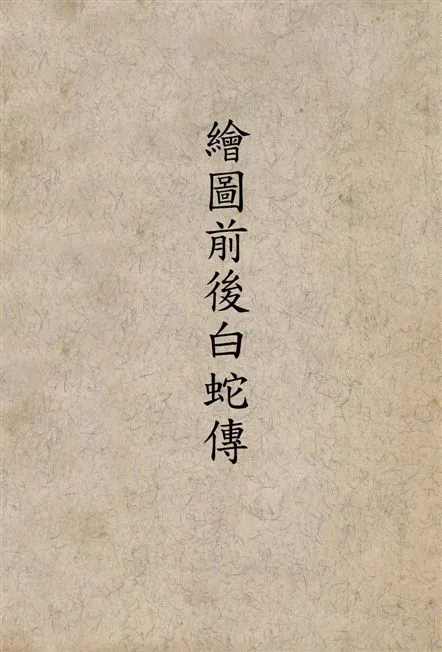 繪圖前後白蛇傳